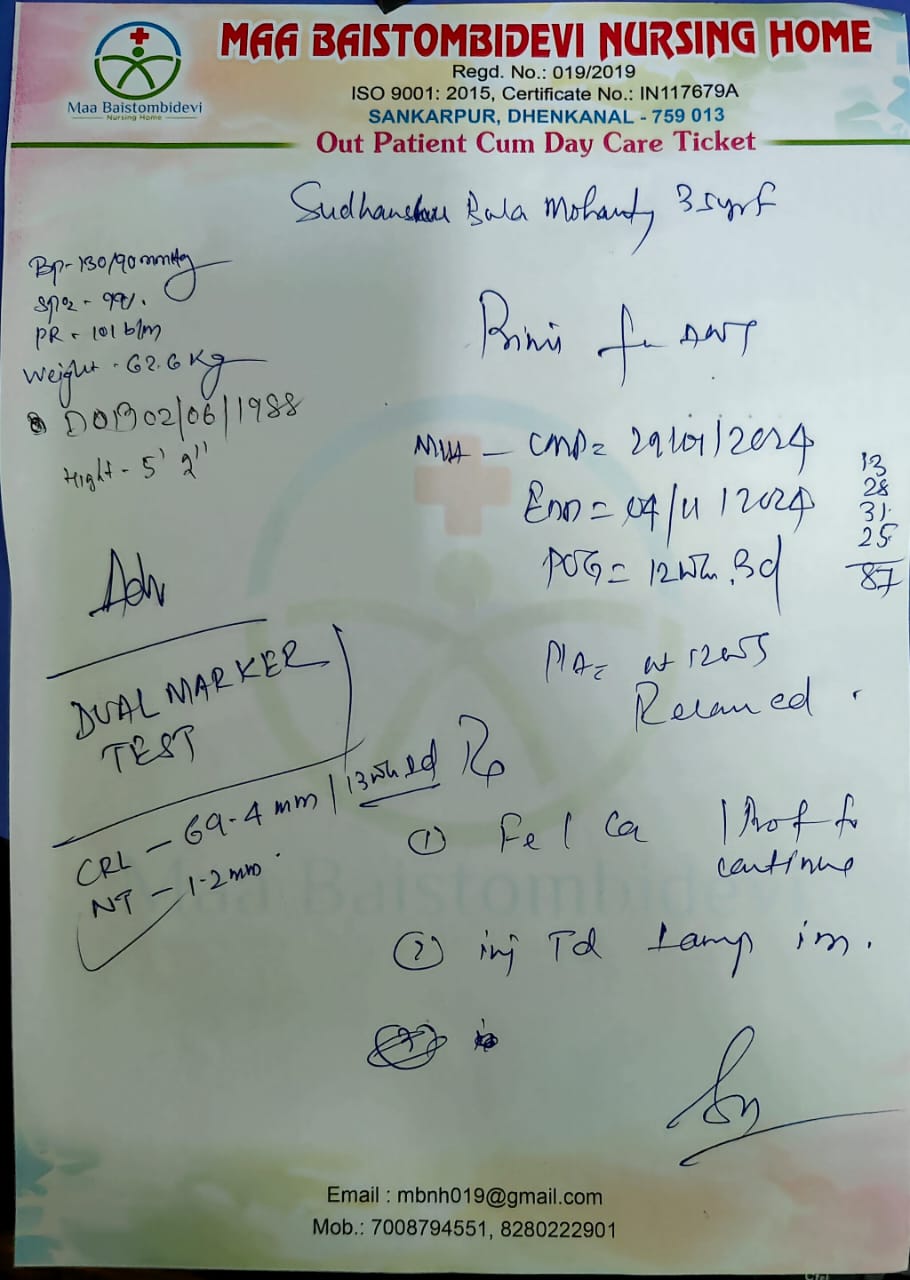 MAA BAISTOMBIDEVI NURSING HOME
Regd. No.: 019/2019
ISO 9001: 2015, Certificate No.: IN117679A
SANKARPUR, DHENKANAL - 759 013
Out Patient Cum Day Care Ticket
Maa Baistombidevi
Nursing Home
Bala Mohanty 35yrf
BP- 130/90mmHg
SPO2 - 99%.
PR - 101 b/m
Weight - 62.6 Kg
DOB 02/06/1988
Hight - 5' 2"
LMP = 29/01/2024
EDD = 04/11/2024
POG = 12wk 3d
13
28
31
25
87
Adv
DUAL MARKER
TEST
CRL - 69.4 mm / 13wk
NT - 1.2mm
Rx
① Fe / Ca
continue
② inj Td 1 amp im.
Maa Baistombidevi
Email : mbnh019@gmail.com
Mob.: 7008794551, 8280222901